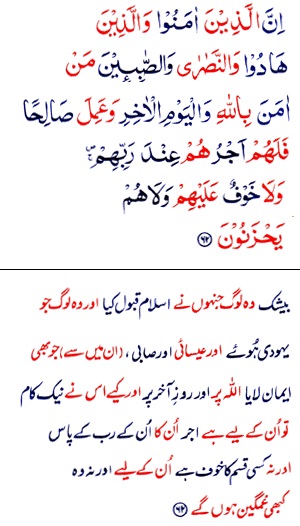 اِنَّ الَّذِيْنَ اٰمَنُوْا وَالَّذِيْنَ
هَادُوْا وَالنَّصٰرٰى وَالصّٰبِـِٕيْنَ مَنْ
اٰمَنَ بِاللّٰهِ وَالْيَوْمِ الْاٰخِرِ وَعَمِلَ صَالِحًا
فَلَهُمْ اَجْرُهُمْ عِنْدَ رَبِّهِمْ ۚ
وَلَا خَوْفٌ عَلَيْهِمْ وَلَا هُمْ
يَحْزَنُوْنَ ﴿۶۲﴾
بیشک وہ لوگ جنہوں نے اسلام قبول کیا اور وہ لوگ جو
یہودی ہُوئے اور عیسائی اور صابی ، (ان میں سے) جو بھی
ایمان لایا اللہ پر اور روزِ آخر پر اور کیے اس نے نیک کام
تو اُن کے لیے ہے اجر اُن کا اُن کے رب کے پاس
اور نہ کسی قسم کا خوف ہے اُن کے لیے اور نہ وہ
کبھی غمگین ہوں گے ﴿۶۲﴾